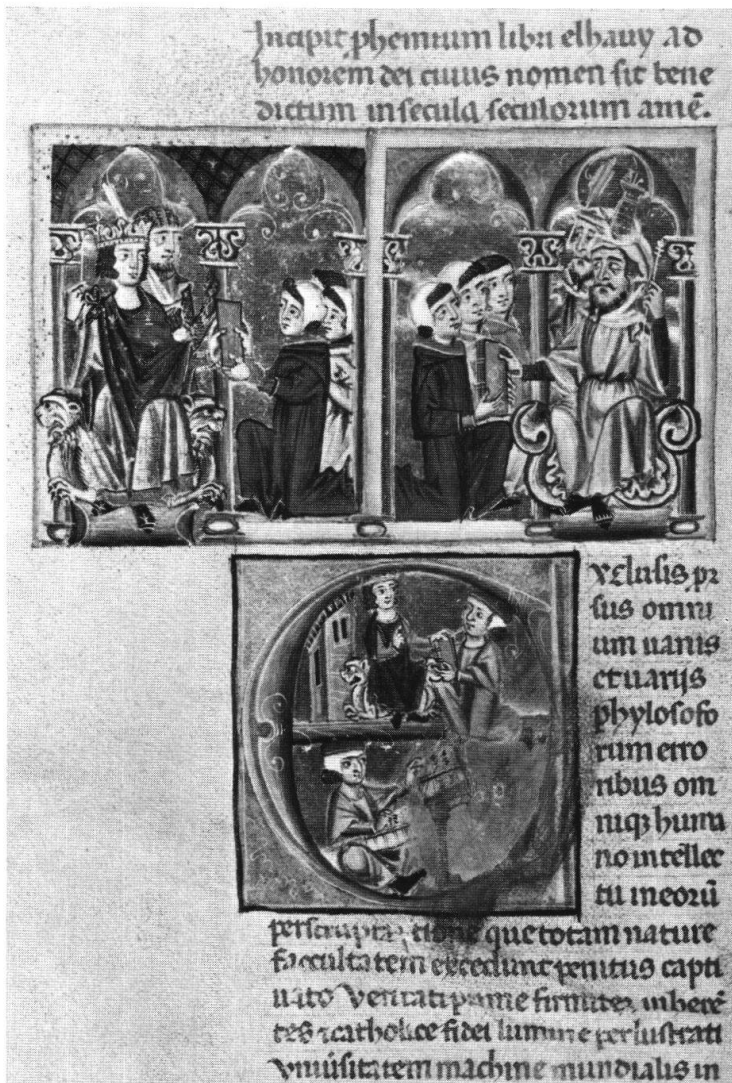 Incipit phemium libri elhauy ad
honorem dei cuius nomen sit bene
dictum in secula seculorum amē.
xclusis pr
sus omni
um uanis
et uarijs
phylosofo
rum erro
ribus om
niqȝ huma
no intellec
tu in eorū
que totam nature
facultatem excedunt penitus capti
uato veritati prime firmiter inherē
tes ⁊ catholice fidei lumine perlustrati
vniuersitatem machine mundialis in